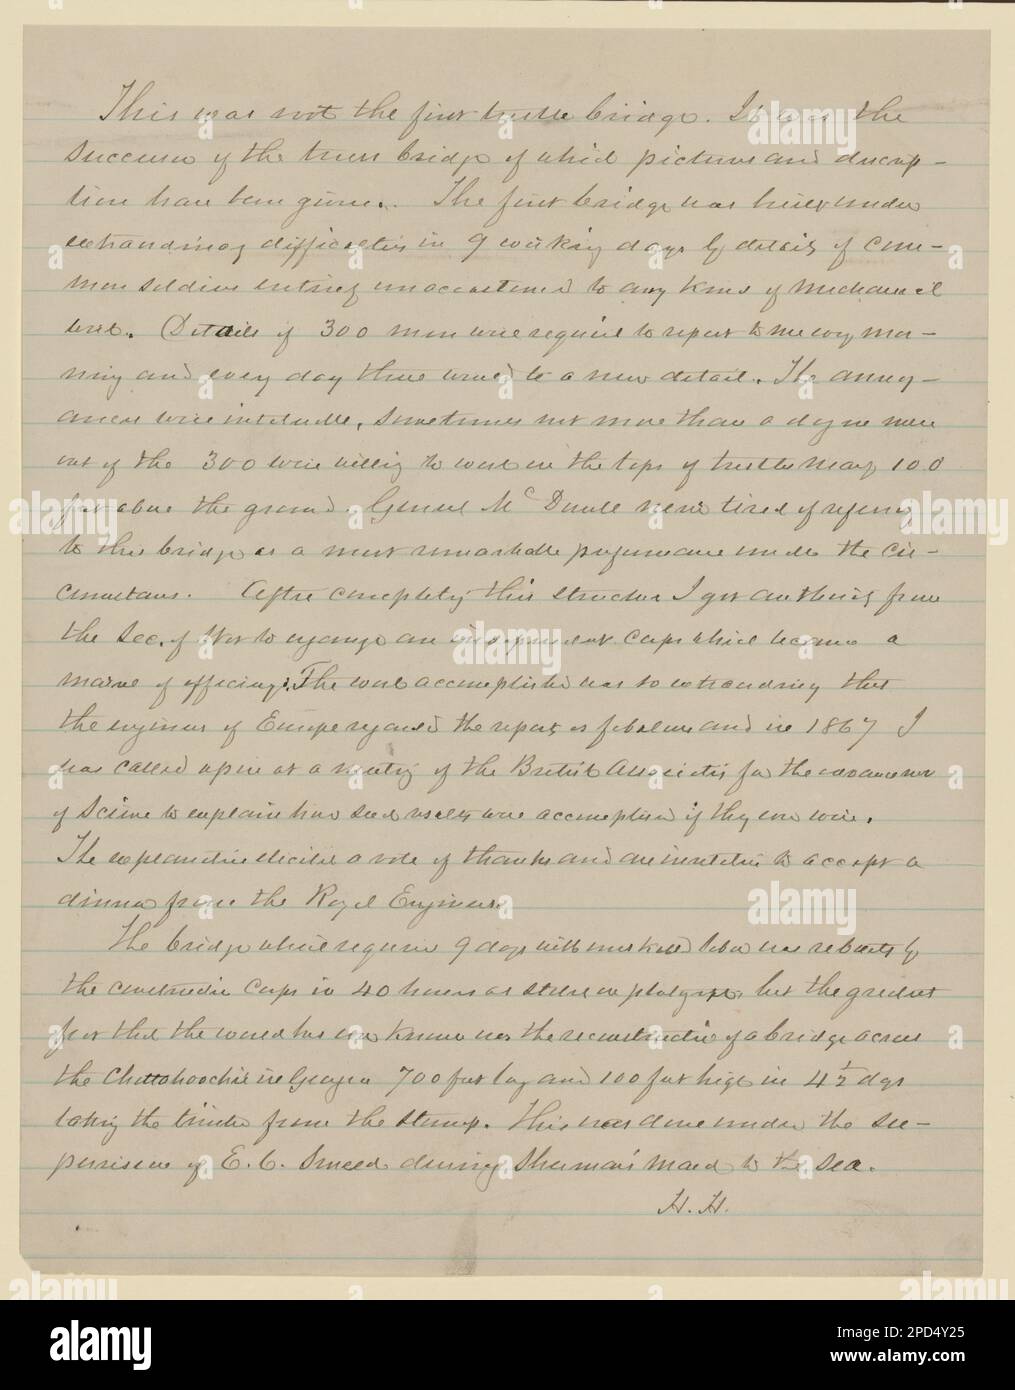 This was not the first trestle bridge. It was the
successor of the truss bridge of which pictures and descrip-
tion have been given. The first bridge was built under
extraordinary difficulties in 9 working days by details of com-
mon soldiers entirely unaccustomed to any kind of mechanical
work. Details of 300 men were required to report to me every mor-
ning and every day there would be a new detail. The annoy-
ances were intolerable, sometimes not more than a dozen men
out of the 300 were willing to work on the tops of trestles many 100
feet above the ground. General McDowell never tired of referring
to this bridge as a most remarkable performance under the cir-
cumstances. After completing this structure I got authority from
the Sec. of War to organize an independent corps which became a
marvel of efficiency. The work accomplished was so extraordinary that
the engineers of Europe regarded the reports as fabulous and in 1867 I
was called upon at a meeting of the British Association for the advancement
of Science to explain how such results were accomplished if they ever were.
The explanation elicited a vote of thanks and an invitation to accept a
dinner from the Royal Engineers.
The bridge which required 9 days with unskilled labor was rebuilt by
the construction Corps in 40 hours as stated on photograph, but the greatest
feat that the world has ever known was the reconstruction of a bridge across
the Chattahoochie in Georgia 700 feet long and 100 feet high in 4 1/2 days
taking the timber from the stump. This was done under the su-
pervision of E. C. Smeed during Sherman's march to the sea.
H. H.
alamy
Image ID: 2PD4Y25
www.alamy.com